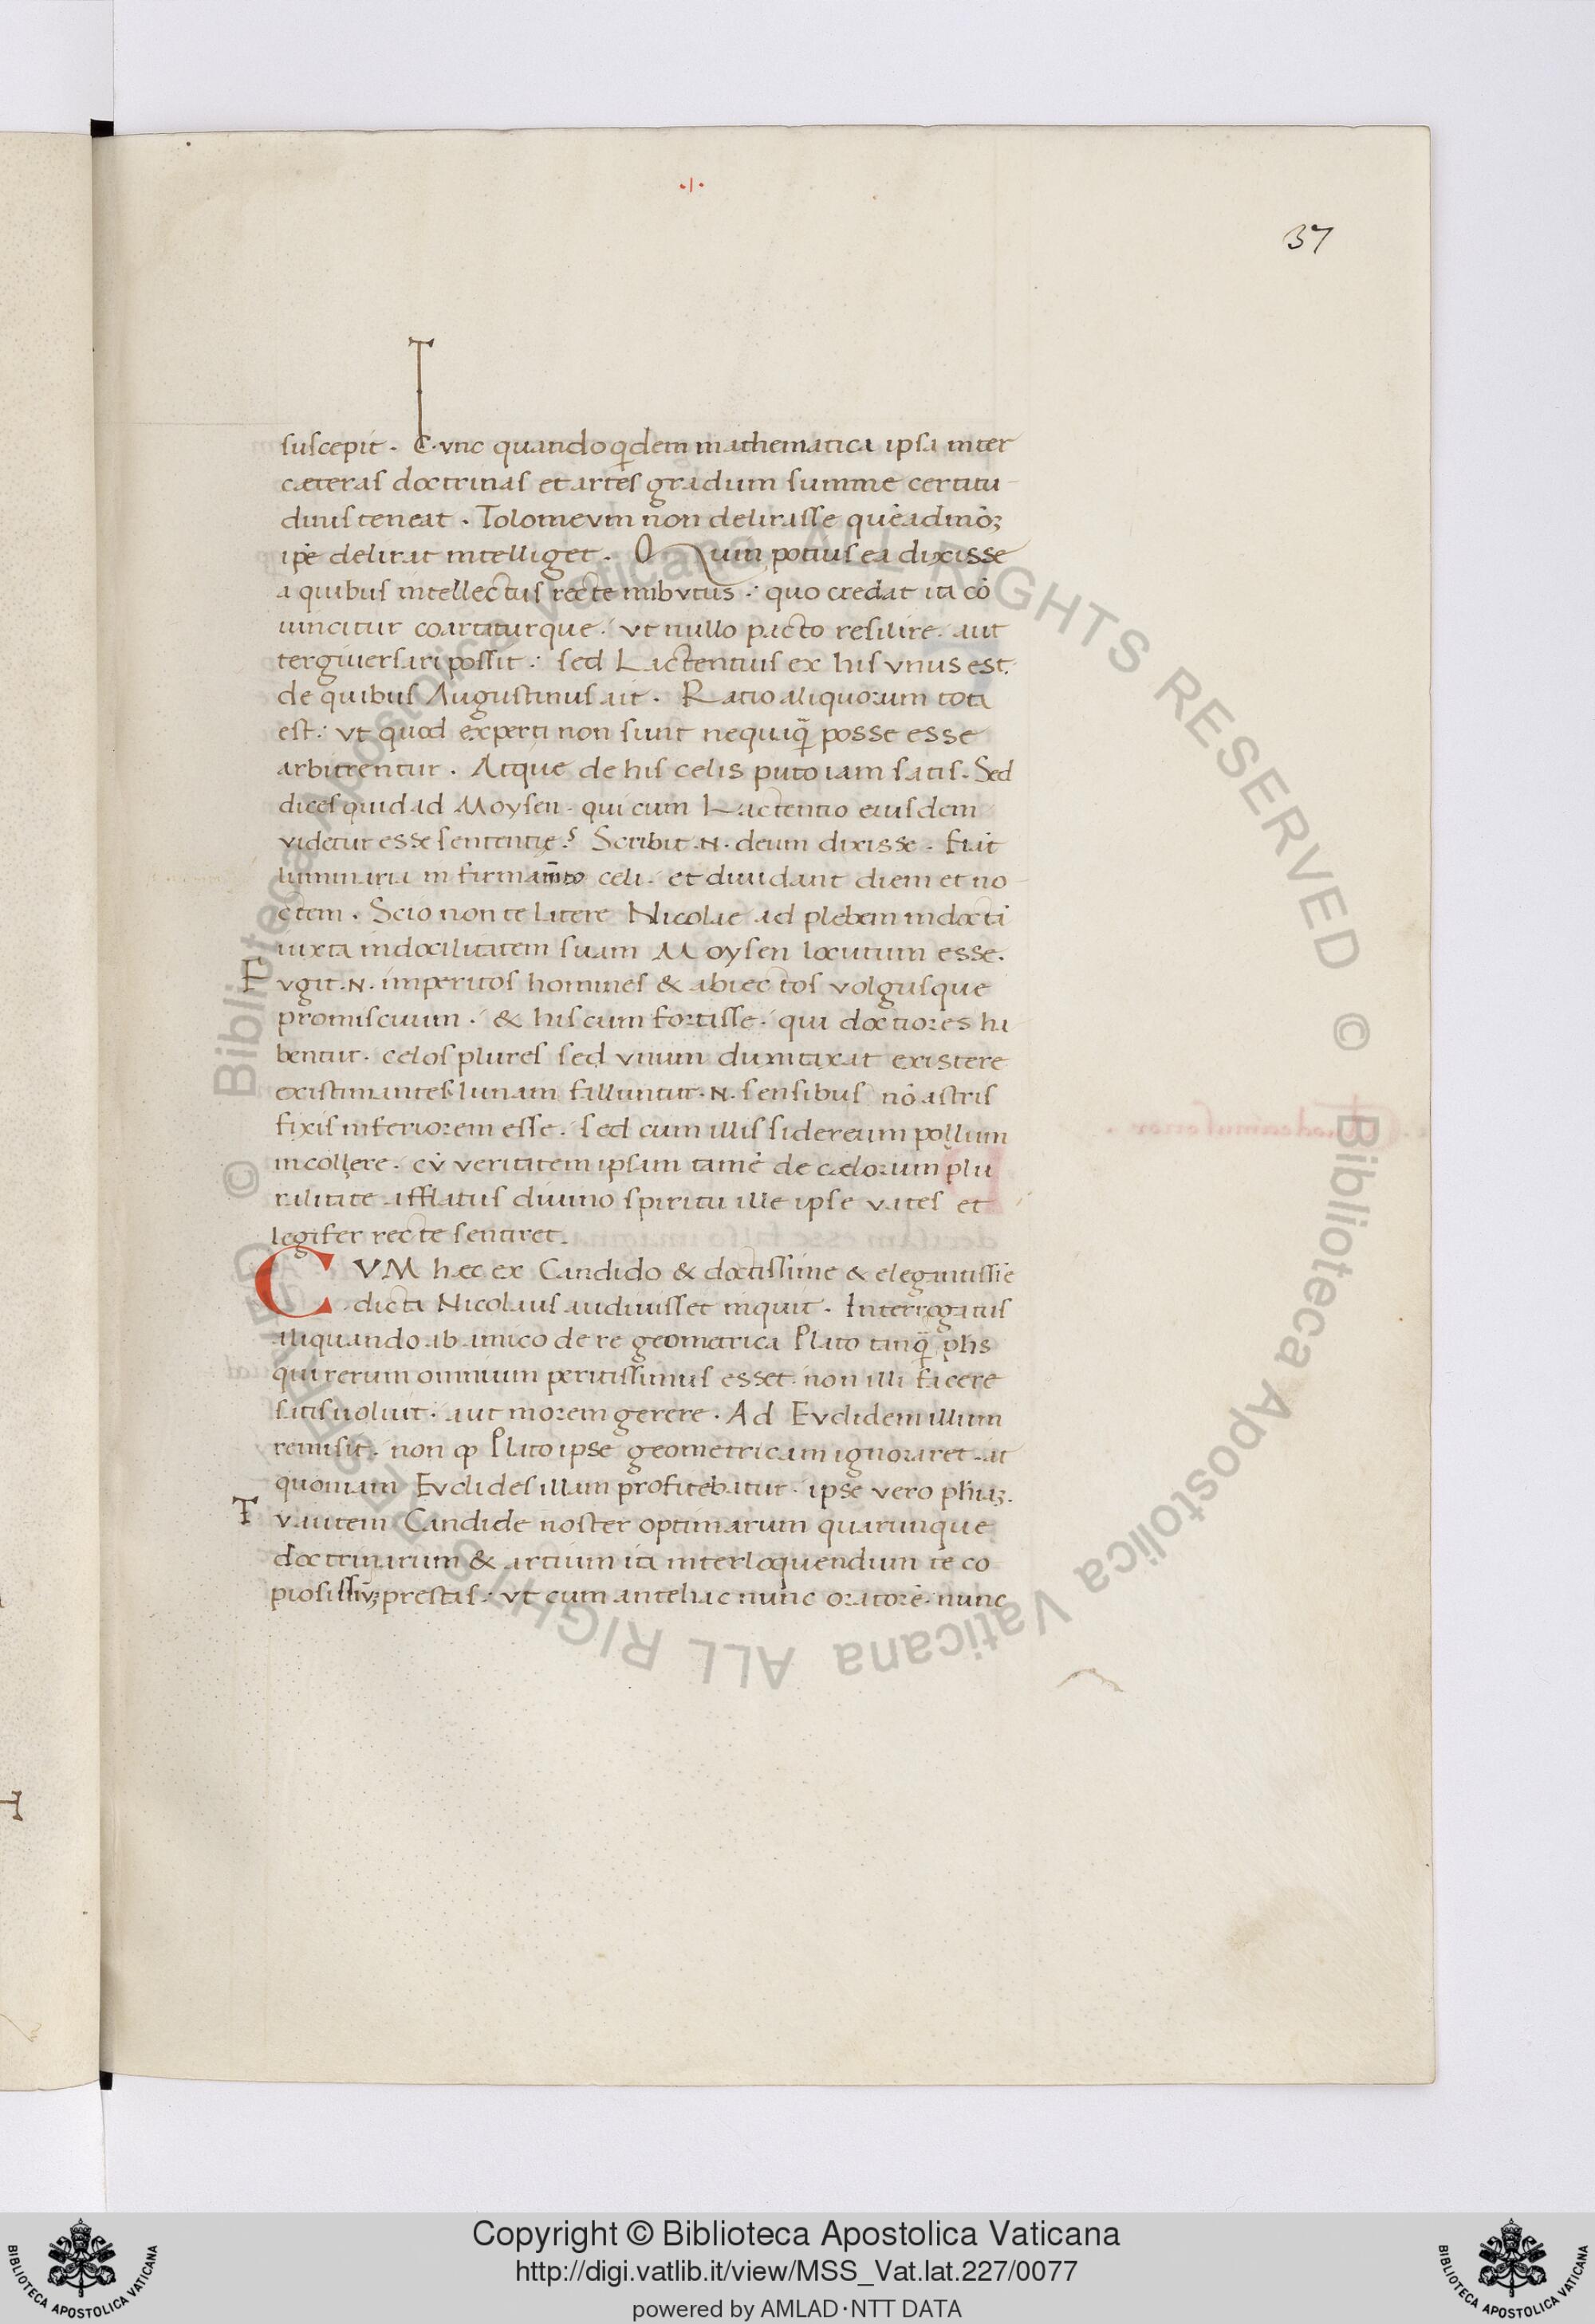 ·I·
37
suscepit. Tunc quando qͥdem mathematica ipsa inter
cæteras doctrinas et artes gradum summe certitu-
dinis teneat. Tolomeum non delirasse quēadmōꝫ
ip̄e delirat intelliget. Quin potius ea dixisse
a quibus intellectus recte inbutus: quo credat ita cō
uincitur coartaturque: ut nullo pacto resilire aut
tergiuersari possit: sed Lactentius ex his unus est.
de quibus Augustinus ait. Ratio aliquorum tota
est: ut quod experti non sunt nequaq̄ posse esse
arbitrentur. Atque de his celis puto iam satis. Sed
dices quid ad Moysen. qui cum Lactentio eiusdem
videtur esse sententię? Scribit .N. deum dixisse. fiāt
luminaria in firmam̄to celi. et diuidant diem et no-
ctem. Scio non te latere Nicolae ad plebem indoctā
iuxta indocilitatem suam Moysen locutum esse.
Fugit .N. imperitos homines & abiectos volgusque
promiscuum. & his cum fortasse. qui doctiores ha
bentur. celos plures sed unum dumtaxat existere
existimantes lunam falluntur .N. sensibus nō astris
fixis inferiorem esse. sed cum illis sidereum
incolere. cū veritatem ipsam tamē de cælorum plu
ralitate afflatus diuino spiritu ille ipse vates et
legifer recte sentiret.
CVM hæc ex Candido & doctissime & elegantissīe
dicta Nicolaus audiuisset inquit. Interrogatus
aliquando ab amico de re geometrica Plato tanq̄ ph̄s
qui rerum omnium peritissimus esset. non illi facere
satis uoluit. aut morem gerere. Ad Euclidem illum
remisit. non ꝙ Plato ipse geometricam ignoraret. at
quoniam Euclides illam profitebatur. ipse vero ph̄iaꝫ.
Tu autem Candide noster optimarum quarunque
doctrinarum & artium ita interloquendum te co
piosissīuꝫ prestas: ut cum antehac nunc oratorē. nunc
Copyright © Biblioteca Apostolica Vaticana
http://digi.vatlib.it/view/MSS_Vat.lat.227/0077
powered by AMLAD·NTT DATA
BIBLIOTECA APOSTOLICA VATICANA
BIBLIOTECA APOSTOLICA VATICANA
© Biblioteca Apostolica Vaticana ALL RIGHTS RESERVED © Biblioteca Apostolica Vaticana ALL RIGHTS RESERVED